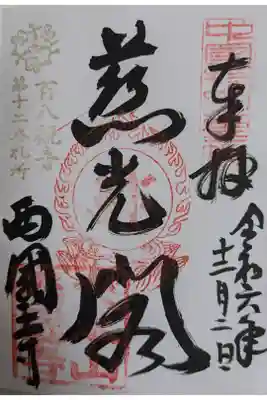 奉拝
令和六年
十二月二日
慈光閣
百八観音
第十二番札所
西國寺